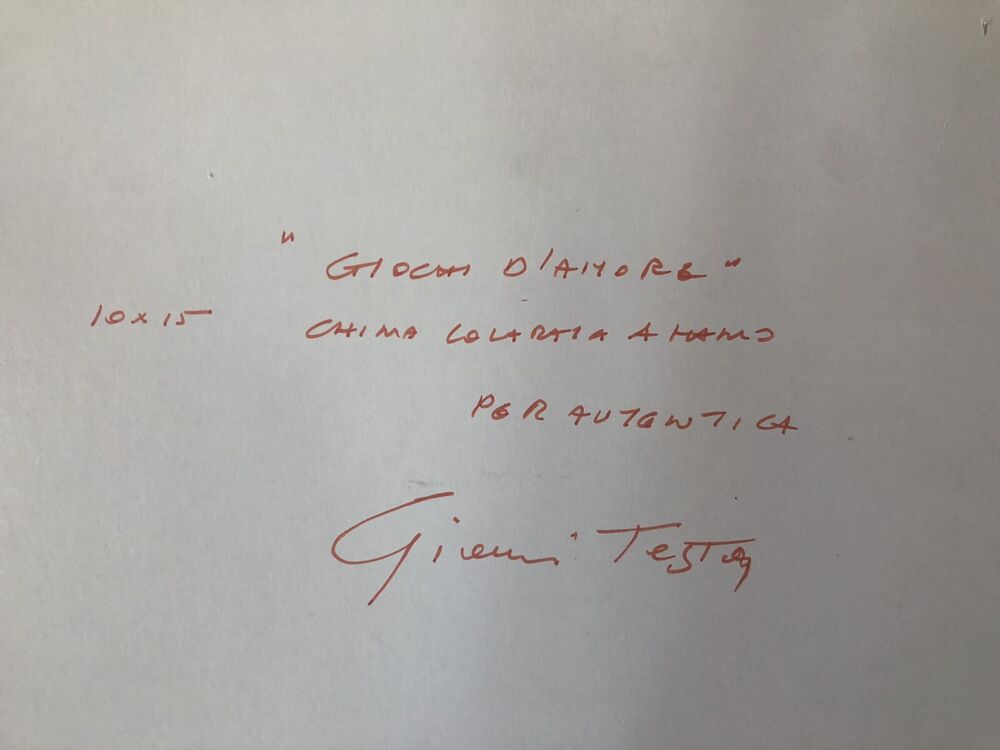 "GIOCHI D'AMORE"
10x15 CHINA COLORATA A MANO
PER AUTENTICA
Gianni Testa